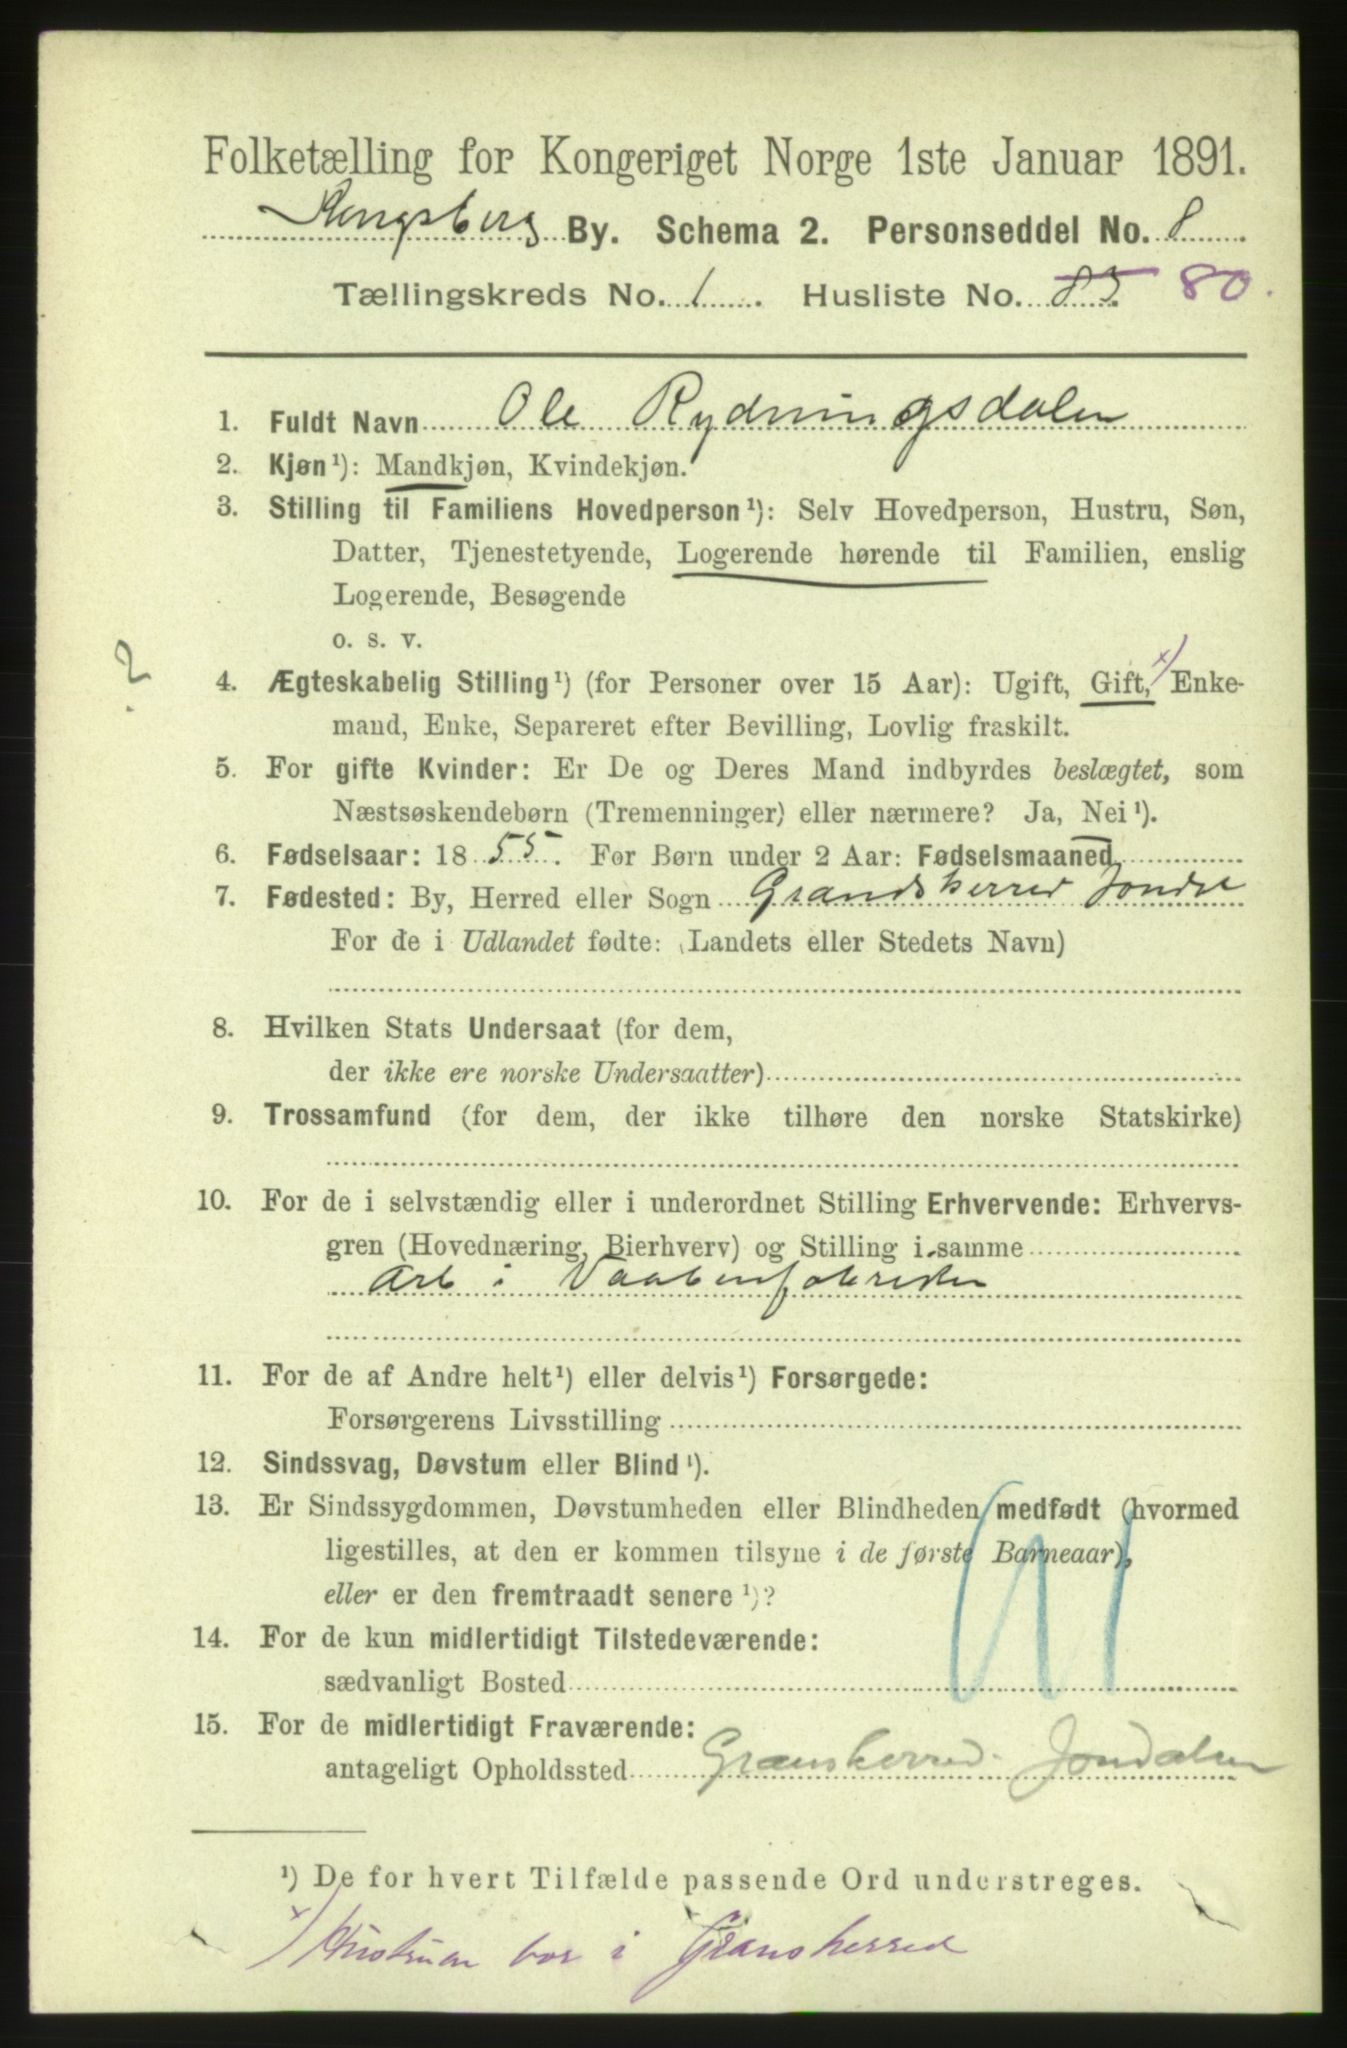 Folketælling for Kongeriget Norge 1ste Januar 1891.
Kongsberg By. Schema 2. Personseddel No. 8
Tællingskreds No. 1. Husliste No. 85 80.
1. Fuldt Navn Ole Rydningsdalen
2. Kjøn¹): Mandkjøn, Kvindekjøn.
3. Stilling til Familiens Hovedperson¹): Selv Hovedperson, Hustru, Søn,
Datter, Tjenestetyende, Logerende hørende til Familien, enslig
Logerende, Besøgende
o. s. v.
?
4. Ægteskabelig Stilling¹) (for Personer over 15 Aar): Ugift, Gift, x) Enke-
mand, Enke, Separeret efter Bevilling, Lovlig fraskilt.
5. For gifte Kvinder: Er De og Deres Mand indbyrdes beslægtet, som
Næstsøskendebørn (Tremenninger) eller nærmere? Ja, Nei¹).
6. Fødselsaar: 1855. For Børn under 2 Aar: Fødselsmaaned
7. Fødested: By, Herred eller Sogn Grandsherred
For de i Udlandet fødte: (Landets eller Stedets Navn)
8. Hvilken Stats Undersaat (for dem,
der ikke ere norske Undersaatter)
9. Trossamfund (for dem, der ikke tilhøre den norske Statskirke)
10. For de i selvstændig eller i underordnet Stilling Erhvervende: Erhvervs-
gren (Hovednæring, Bierhverv) og Stilling i samme
Arb i Vaabenfabrikken
11. For de af Andre helt¹) eller delvis¹) Forsørgede:
Forsørgerens Livsstilling
12. Sindssvag, Døvstum eller Blind¹).
13. Er Sindssygdommen, Døvstumheden eller Blindheden medfødt (hvormed
ligestilles, at den er kommen tilsyne i de første Barneaar),
eller er den fremtraadt senere¹)?
14. For de kun midlertidigt Tilstedeværende:
sædvanligt Bosted
15. For de midlertidigt Fraværende:
antageligt Opholdssted Gransherred. Jondalen
¹) De for hvert Tilfælde passende Ord understreges.
x) Hustruen bor i Gransherred